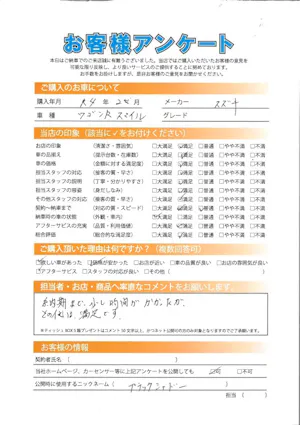 お客様アンケート
本日はご納車でのご来店誠に有難うございました。当店でご購入いただいたお客様の意見を
可能な限り反映し、より良いサービスのご提供することに努めております。
お手数をお掛けしますが、是非お客様のご意見をお聞かせください。
ご購入のお車について
購入年月 R4年 2月 メーカー スズキ
車種 ワゴンR スマイル グレード
当店の印象(該当に✓をお付けください)
お店の印象 (清潔さ・雰囲気) □大満足 ☑満足 □普通 □やや不満 □不満
車の品揃え (展示台数・在庫数) □大満足 ☑満足 □普通 □やや不満 □不満
車の価格 (金額に対する満足度) □大満足 ☑満足 □普通 □やや不満 □不満
担当スタッフの対応 (接客の質・早さ) □大満足 ☑満足 □普通 □やや不満 □不満
担当スタッフの説明 (丁寧・分かりやすさ) □大満足 ☑満足 □普通 □やや不満 □不満
担当スタッフの容姿 (身だしなみ) □大満足 ☑満足 □普通 □やや不満 □不満
その他スタッフの対応 (接客の質・早さ) □大満足 ☑満足 □普通 □やや不満 □不満
契約〜納車まで (対応の質・スピード) □大満足 ☑満足 □普通 □やや不満 □不満
納車時の車の状態 (外観・車内) □大満足 ☑満足 □普通 □やや不満 □不満
アフターサービスの充実 (品質・利用料金) □大満足 ☑満足 □普通 □やや不満 □不満
総合評価 (総合的な満足度) □大満足 ☑満足 □普通 □やや不満 □不満
ご購入頂いた理由は何ですか?(複数回答可)
☑欲しい車があった ☑価格が安かった □お店が近い □車の品質が良い □お店の雰囲気が良い
☑アフターサービス □スタッフの対応が良い □その他( )
担当者・お店・商品へ率直なコメントをお願いします。
納期まで、少し時間がかかったが、
その他は、満足です。
お客様の情報
契約者氏名( )
当社ホームページ、カーセンサー等に上記アンケートを公開しても 可 □不可
公開時に使用するニックネーム( ブラックシャドー )
担当( )